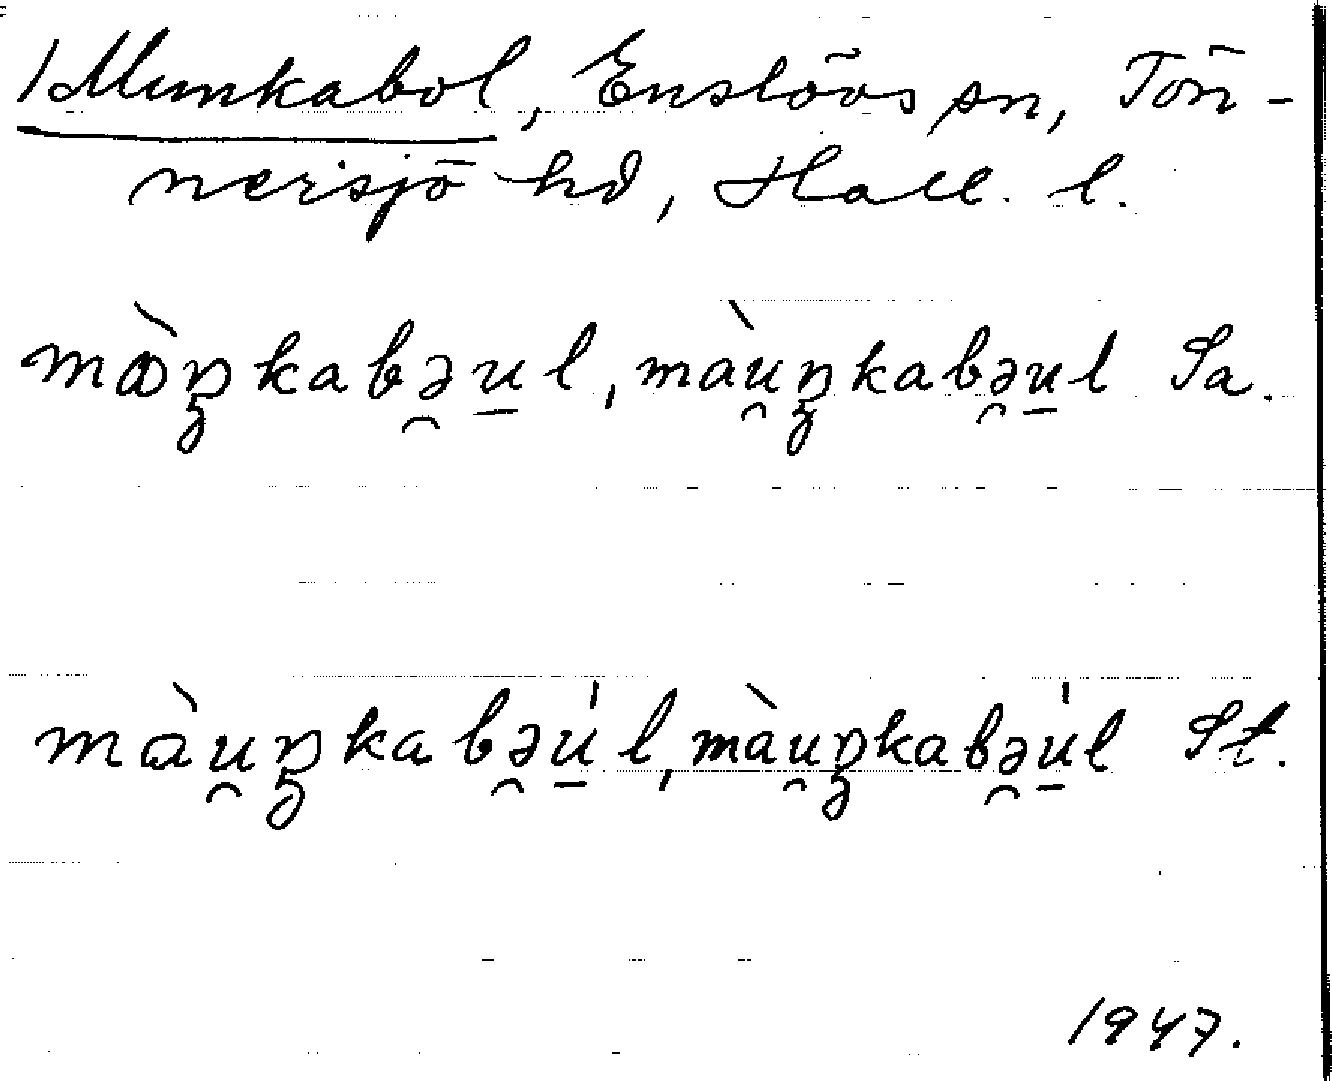 1 Munkabol, Enslövs sn, Tön-
nersjö hd, Hall. l.
mὼŋkabə̯u̲l, màu̯ŋkabə̯u̲l Sa.
màu̯ŋkabə̯ú̲l, màu̯ŋkabə̯ú̲l St.
1947.